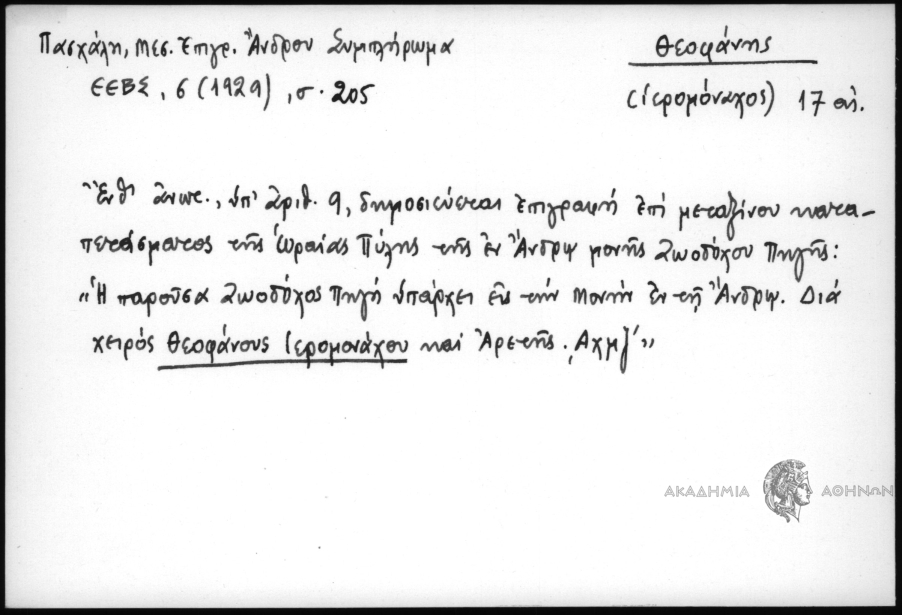 Πασχάλη, Μεσ. Ἐπιγρ. Ἄνδρου Συμπλήρωμα
ΕΕΒΣ, 6 (1929), σ. 205
Θεοφάνης
(ἱερομόναχος) 17 αἰ.
Ἔνθ' ἄνωτ., ὑπ' ἀριθ. 9, δημοσιεύεται ἐπιγραφή ἐπί μεταξίνου κατα-
πετάσματος τῆς Ὡραίας Πύλης τῆς ἐν Ἄνδρῳ μονῆς Ζωοδόχου Πηγῆς:
"Ἡ παροῦσα Ζωοδόχος Πηγή ὑπάρχει εἰς τήν Μονήν ἐν τῇ Ἄνδρῳ. Διά
χειρός Θεοφάνους Ἱερομονάχου καί Ἀρετῆς. ͵Αχμζ'"
ΑΚΑΔΗΜΙΑ ΑΘΗΝΩΝ